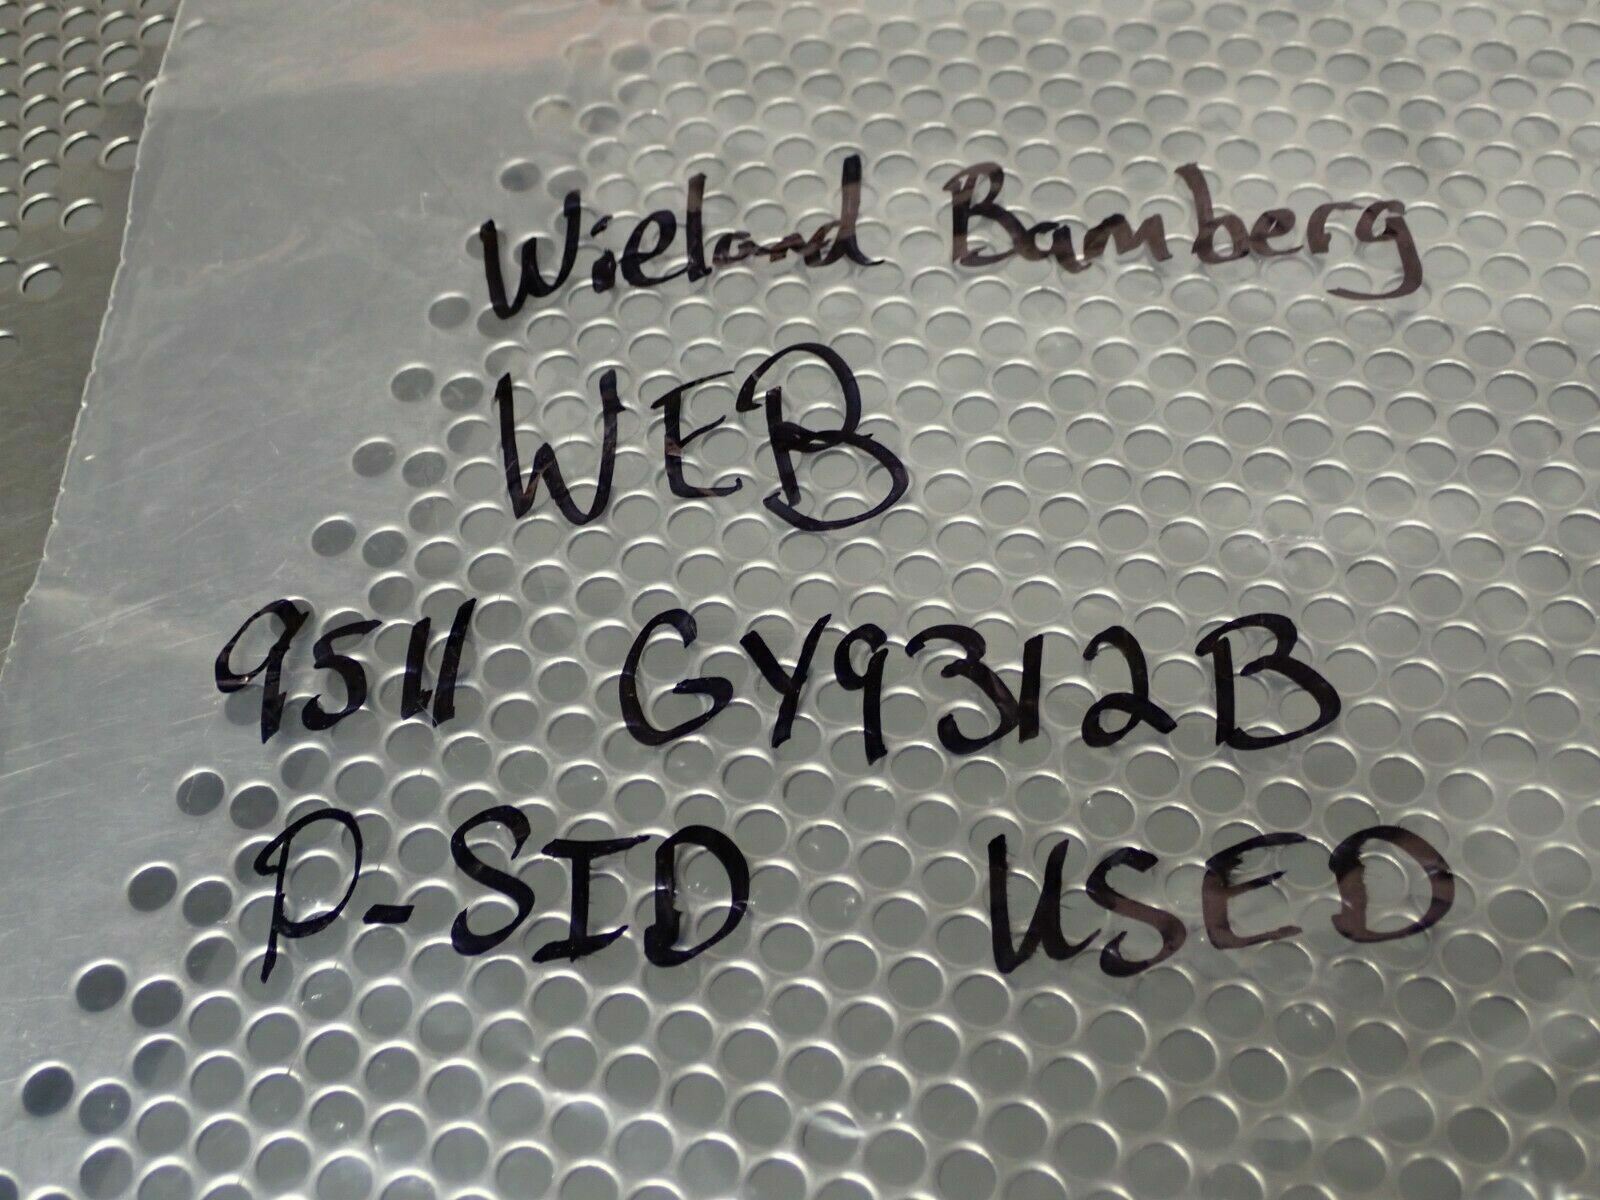 Wieland Bamberg
WEB
9511 GY9312B
P-SID USED